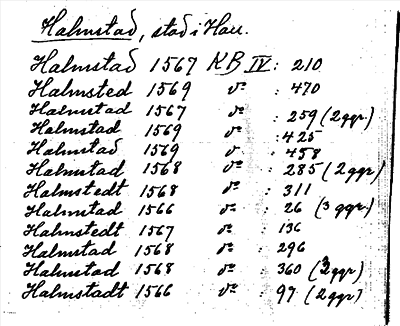 Halmstad, stad i Hall.
Halmstad 1567 KB IV : 210
Halmsted 1569 d:o : 470
Halmstad 1567 d:o : 259 (2 ggr)
Halmstad 1569 d:o : 425
Halmstad 1569 d:o : 458
Halmstad 1568 d:o : 285 (2 ggr)
Halmstedt 1568 d:o : 311
Halmstad 1566 d:o : 26 (3 ggr.)
Halmstedt 1567 d:o : 136
Halmstad 1568 d:o : 296
Halmstad 1568 d:o : 360 (2 ggr)
Halmstadt 1566 d:o : 97 (2 ggr)